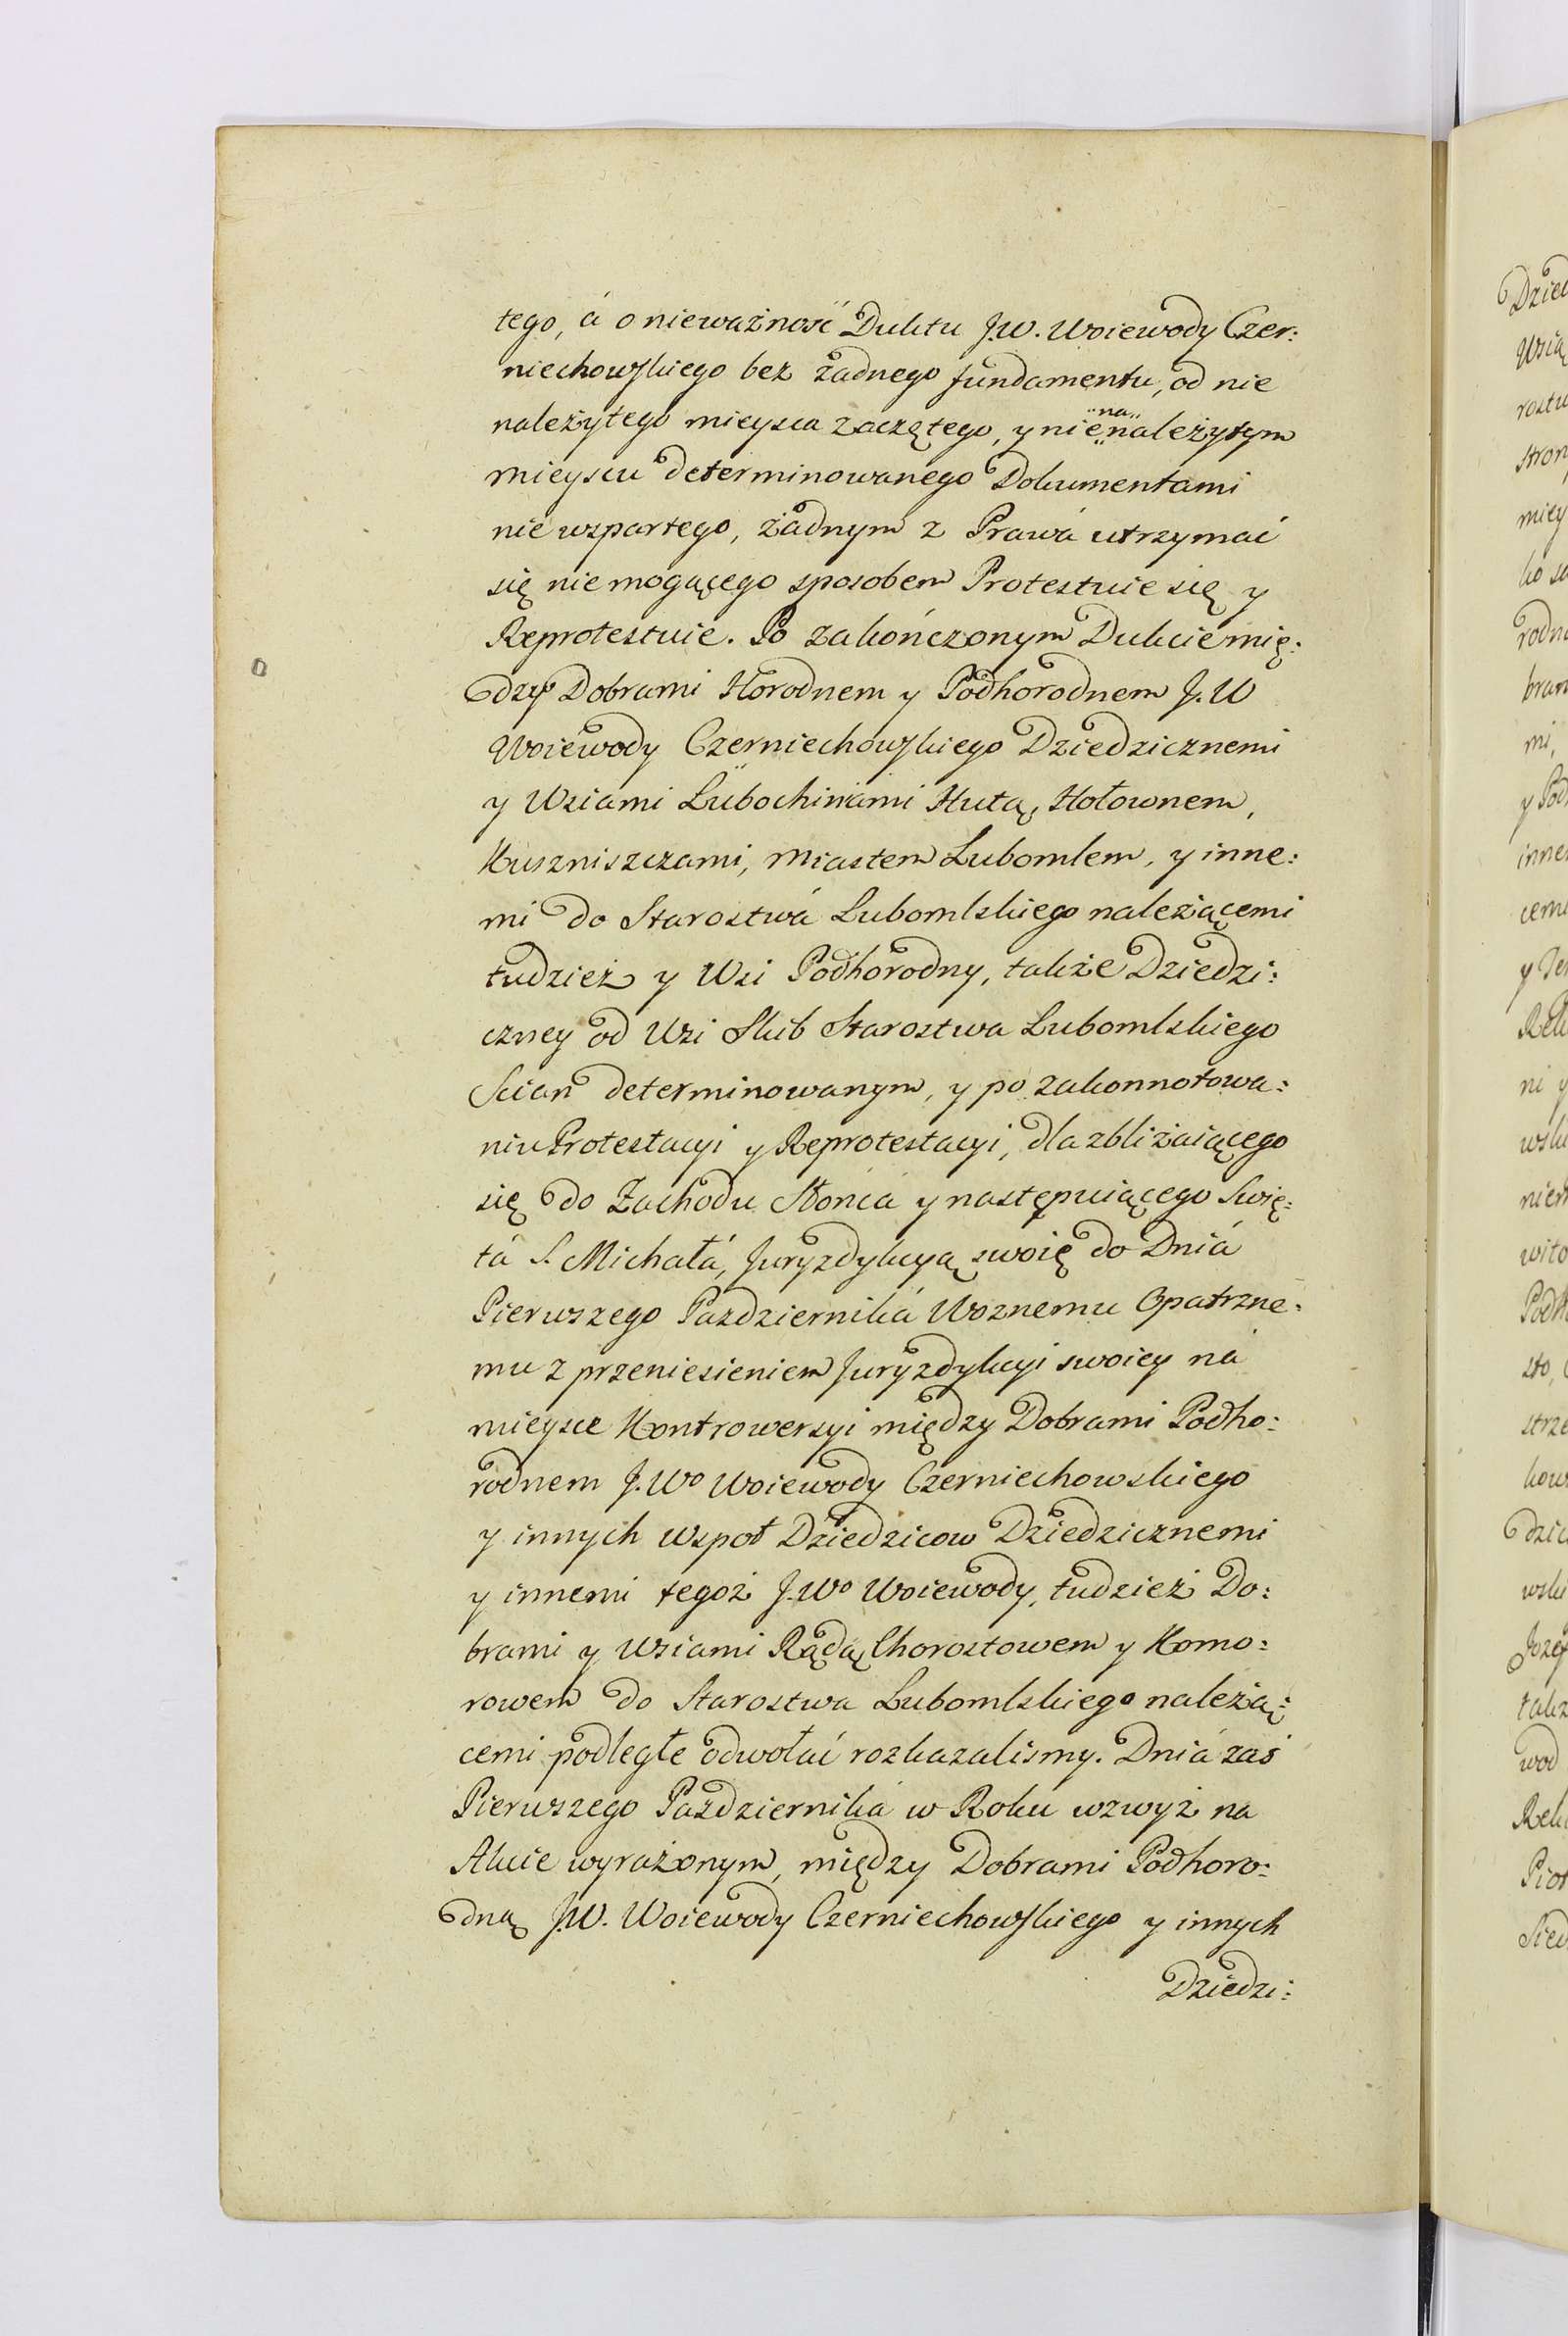 tego, á o nieważność Duktu J.W. Woiewody Czer:
niechowskiego bez żadnego fundamentu, od nie
należytego mieysca zaczętego, y nie „na„ należytym
mieyscu determinowanego Dokumentami
nie wspartego, żadnym z Prawá utrzymać
się niemogącego sposobem Protestuie się y
Reprotestuie. Po zakończonym Dukcie mię:
dzy Dobrami Horodnem y Podhorodnem J.W
Woiewody Czerniechowskiego Dziedzicznemi
y Wsiami Lubochiniami Hutą, Hołownem,
Kuszniszczami, Miastem Lubomlem, y inne:
mi do Starostwá Lubomlskiego należącemi
tudzież y Wsi Podhorodny, także Dziedzi:
czney od Wsi Skib Starostwa Lubomlskiego
Scian determinowanym, y po zakonnotowa:
niu Protestacyi y Reprotestacyi, dla zbliżaiącego
się do Zachodu Słońca y następuiącego Swię:
tá S. Michałá, Juryzdykcyą swoię do Dniá
Pierwszego Pazdziernika Woznemu Opatrzne:
mu z przeniesieniem Juryzdykcyi swoiey ná
mieysce Kontrowersyi między Dobrami Podho:
rodnem J.Wo Woiewody Czerniechowskiego
y innych Wspoł Dziedzicow Dziedzicznemi
y innemi tegoż J.Wo Woiewody, tudzież Do:
brami y Wsiami Rądą Chorostowem y Komo:
rowem do Starostwa Lubomlskiego należą:
cemi podległe odwołać rozkazalismy. Dniá zaś
Pierwszego Pazdziernika w Roku wzwyż na
Akcie wyrażonym, między Dobrami Podhoro:
dną J.W. Woiewody Czerniechowskiego y innych
Dziedzi: